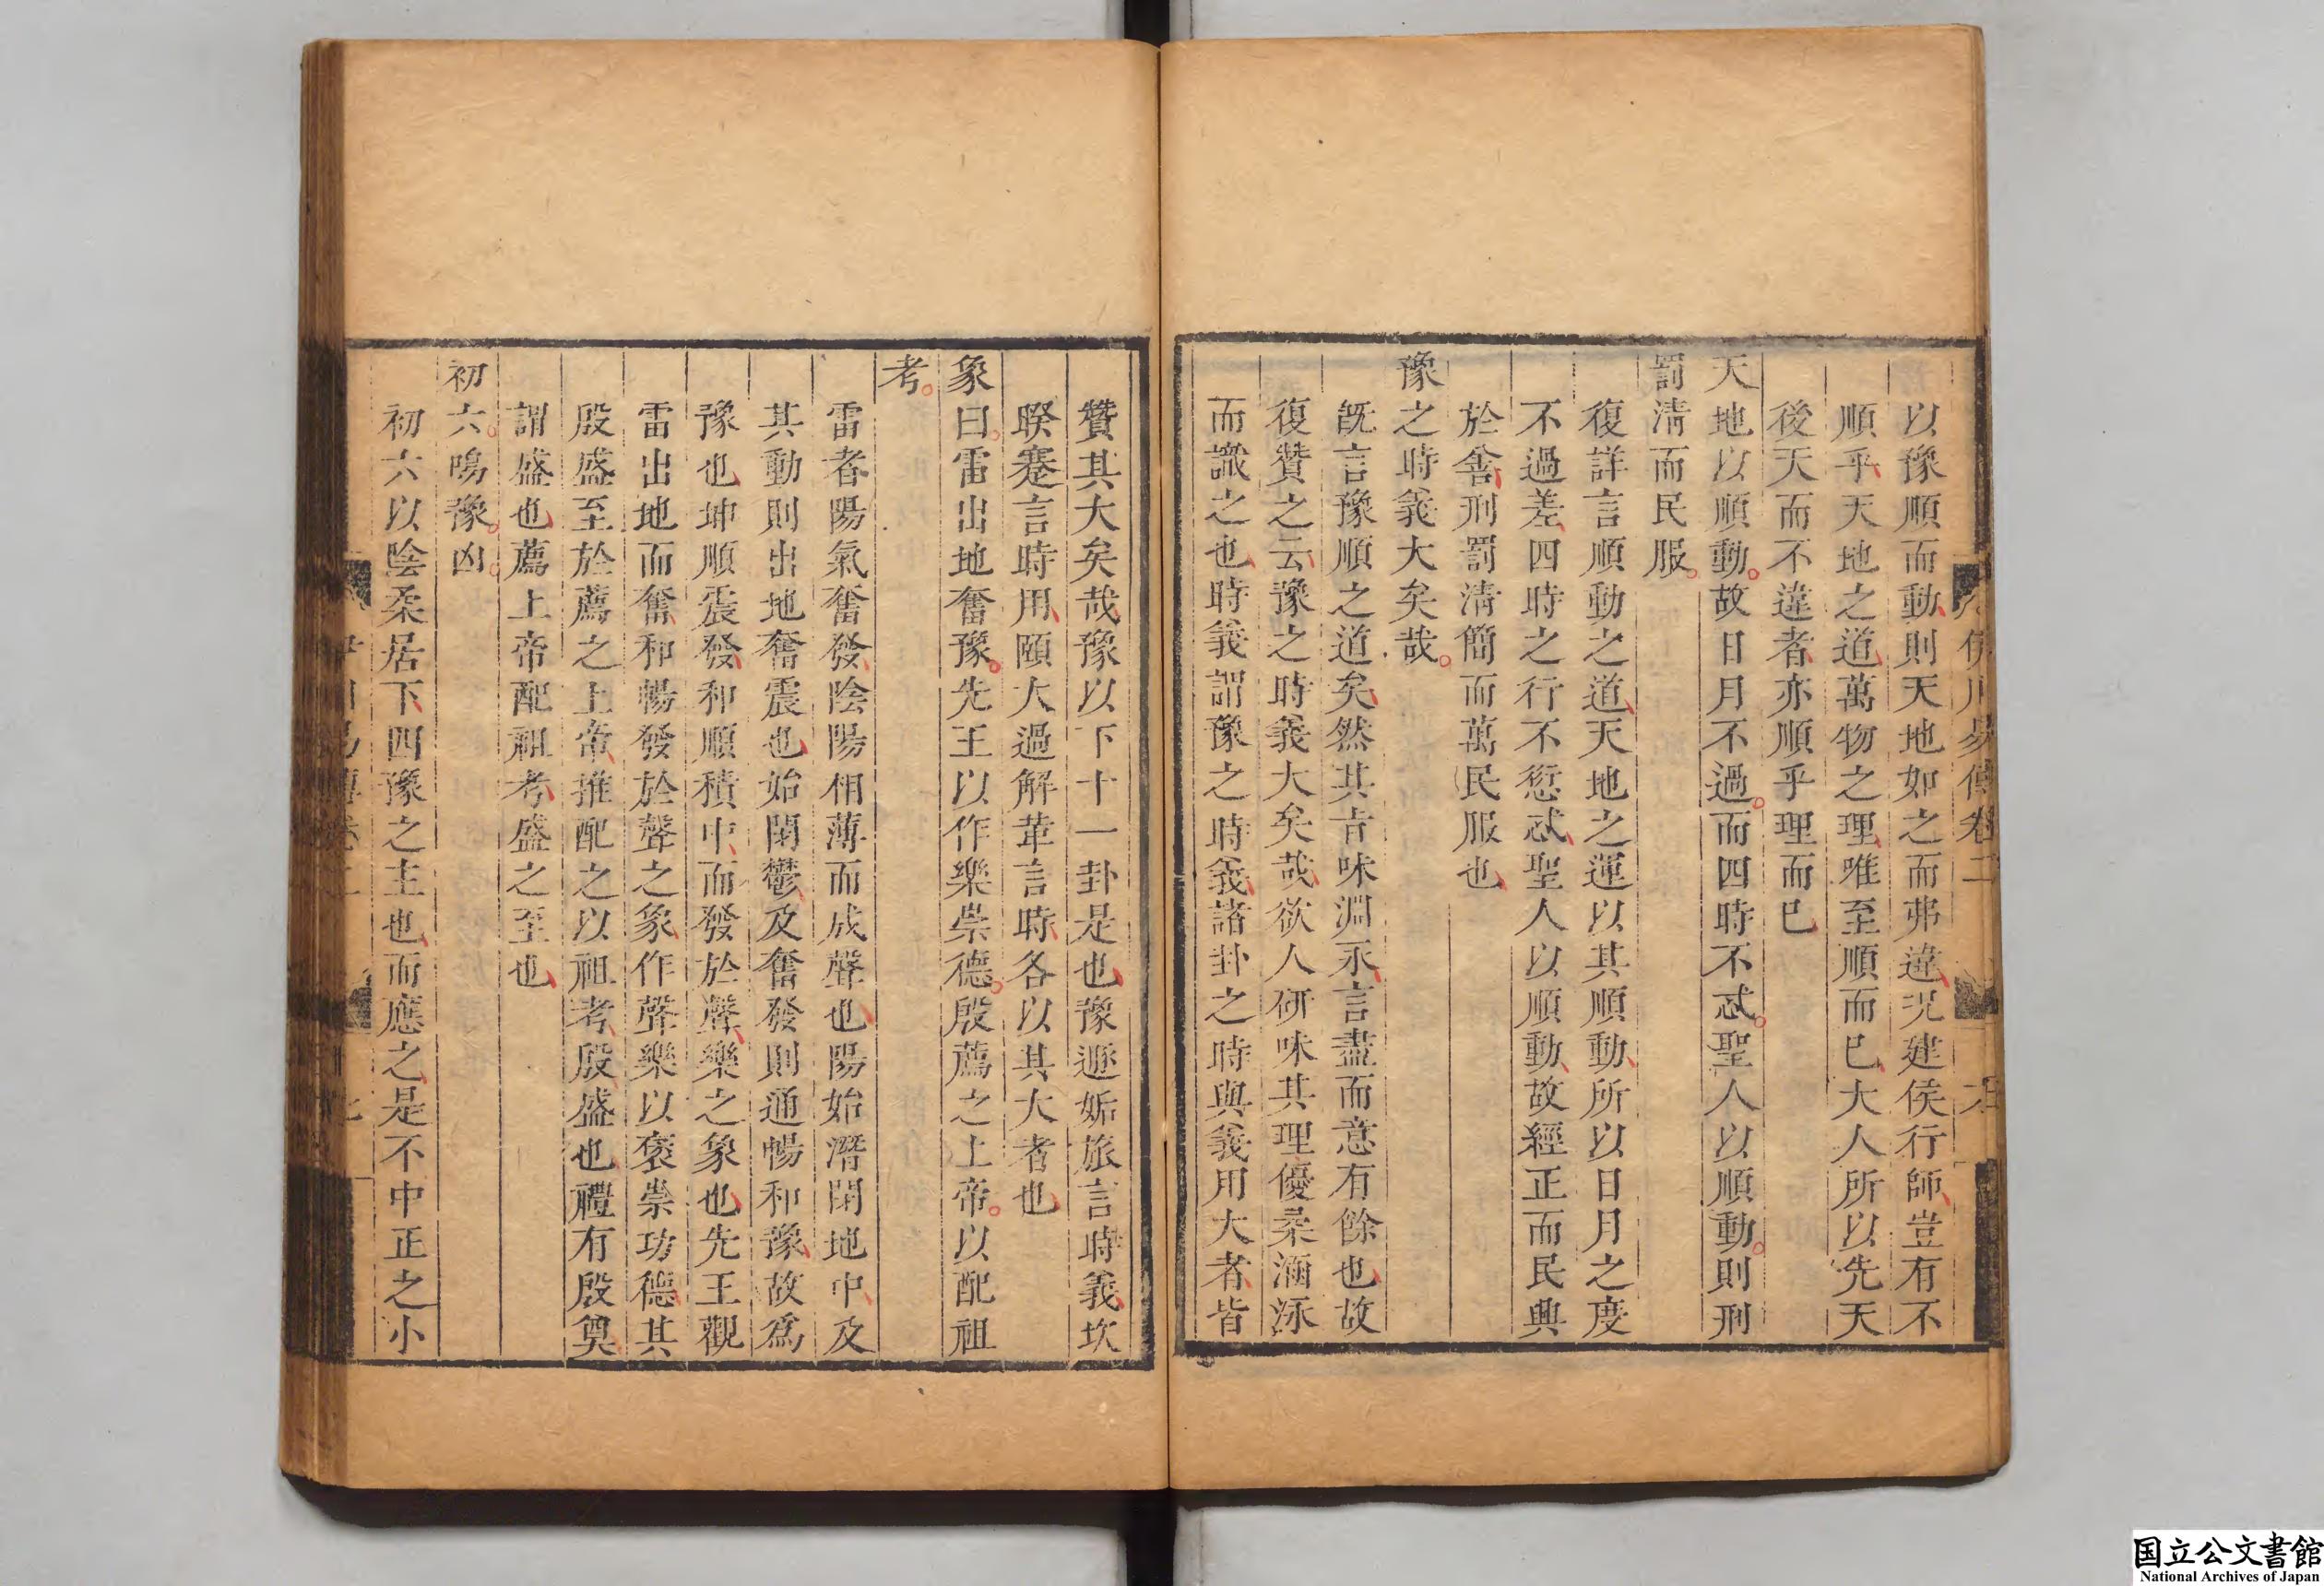 以豫順而動則天地如之而弗違況建侯行師豈有不
順乎天地之道萬物之理唯至順而已大人所以先天
後天而不違者亦順乎理而已
天地以順動。故日月不過。而四時不忒。聖人以順動。則刑
罰清而民服。
復詳言順動之道天地之運以其順動所以日月之度
不過差四時之行不愆忒聖人以順動故經正而民興
於善刑罰清簡而萬民服也
豫之時義大矣哉。
旣言豫順之道矣然其旨味淵永言盡而意有餘也故
復贊之云豫之時義大矣哉欲人研味其理優柔涵泳
而識之也時義謂豫之時義諸卦之時與義用大者皆
贊其大矣哉豫以下十一卦是也豫遯姤旅言時義坎
睽蹇言時用頤大過解革言時各以其大者也
象曰。雷出地奮豫。先王以作樂崇德。殷薦之上帝。以配祖
考。
雷者陽氣奮發陰陽相薄而成聲也陽始潛閉地中及
其動則出地奮震也始閉鬱及奮發則通暢和豫故爲
豫也坤順震發和順積中而發於聲樂之象也先王觀
雷出地而奮和暢發於聲之象作聲樂以褒崇功德其
殷盛至於薦之上帝推配之以祖考殷盛也禮有殷奠
謂盛也薦上帝配祖考盛之至也
初六。鳴豫。凶。
初六以陰柔居下四豫之主也而應之是不中正之小
国立公文書館
National Archives of Japan